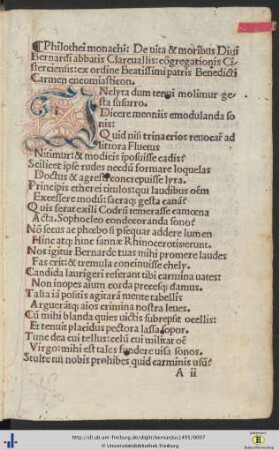 ¶Philothei monachi: De vita & moribus Diui
Bernardi abbatis Clareuallis: cōgregationis Ci-
sterciensis: ex ordine Beatissimi patris Benedicti
Carmen encomiasticon.
INclyta dum tenui molimur ge-
sta susurro.
Dicere menniis emodulanda so
nis:
Quid nisi trinacrios reuocar̄ ad
littora Fluctus
Nitimur: & modicis īposuisse cadis?
Scilicet ipse rudes nec dū formare loquelas
Doctus & agresti concrepuisse lyra.
Principis etherei titulos: qui laudibus oēm
Excessere modū: sacraq; gesta canā?
Quis ferat exilis Codrū temerasse camœna
Acta. Sophocleo condecoranda sono?
Nō secus ac phœbo si p̄sequar addere lumen
Hinc atq; hinc sannæ Rhinocerotis erunt.
Nos igitur Bernarde tuas mihi promere laudes
Fas erit: & tremula concinuisse chely.
Candida laurigeri referant tibi carmina uates:
Non inopes aium exorda preces q; damus.
Talia iā positis agitarā mente tabellis
Arguerāt q; aīos crimina nostra leues.
Cū mihi blanda quies uictis subrepsit ocellis:
Et tenuit placidus pectora lassa sopor.
Tunc dea cui tellus: celū cui militat oē
Virgo: mihi est tales fundere uisa sonos.
Stulte ut nobis prohibes quid carminis usū?
A ii
http://dl.ub.uni-freiburg.de/diglit/bernardus1495/0007
© Universitätsbibliothek Freiburg